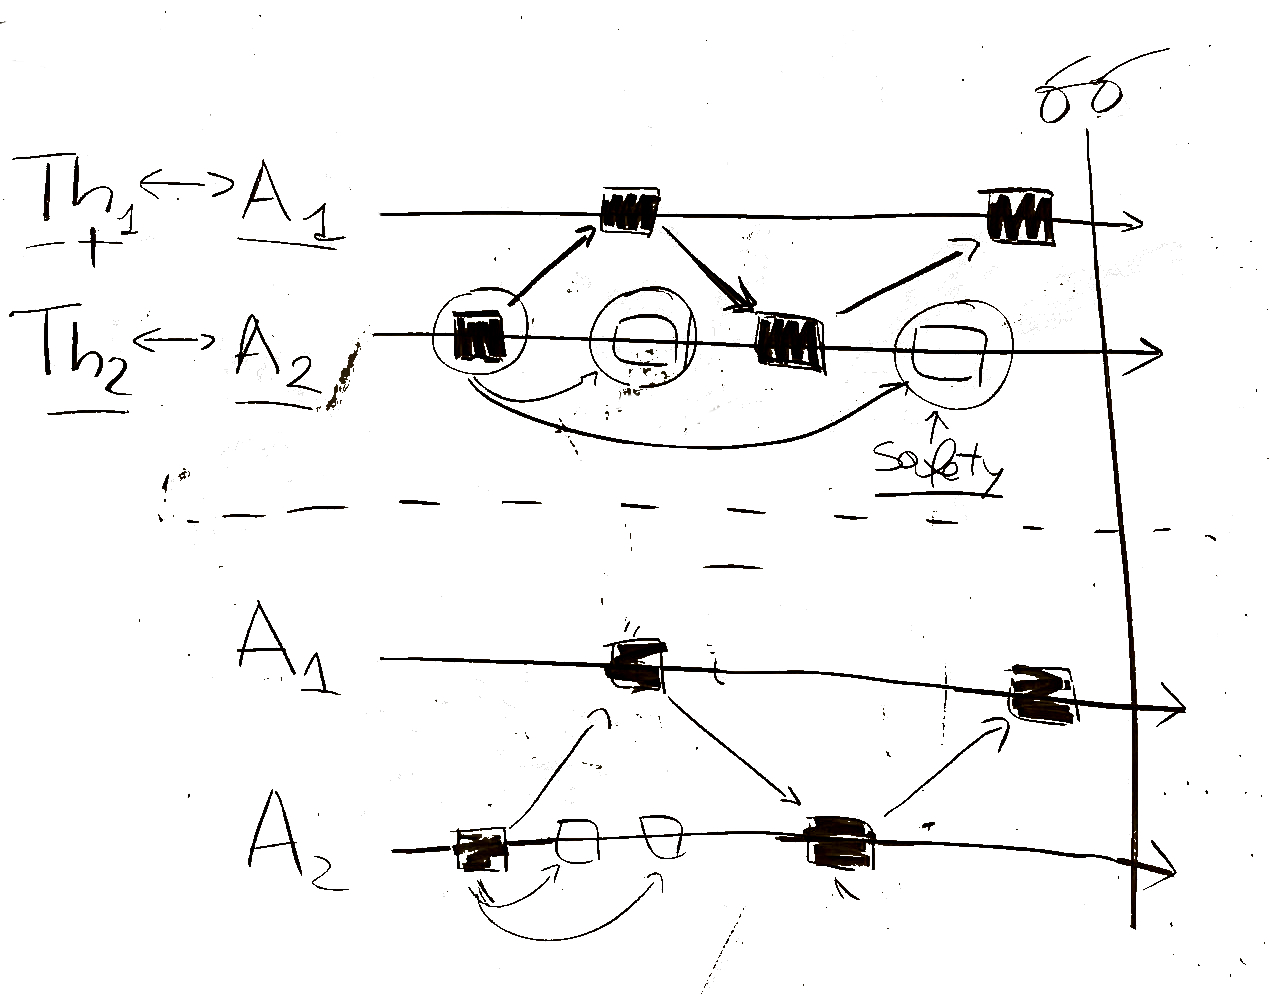 Th₁ ↔ A₁
+
Th₂ ↔ A₂
Safety
A₁
A₂